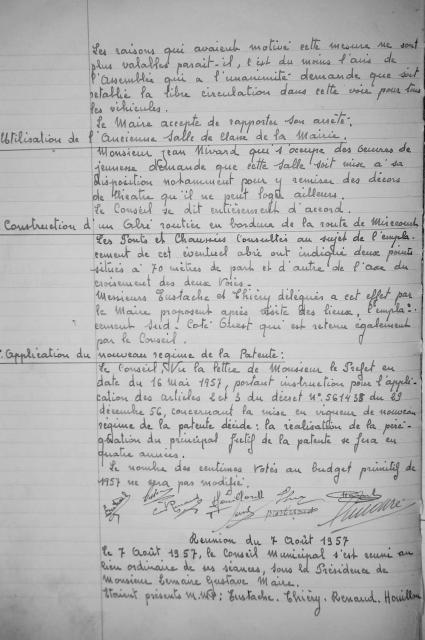 Les raisons qui avaient motivé cette mesure ne sont
plus valables parait-il, c'est du moins l'avis de
l'Assemblée qui a l'unanimité demande que soit
rétablie la libre circulation dans cette voie pour tous
les véhicules.
Le Maire accepte de rapporter son arrêté.
Utilisation de l'Ancienne Salle de Classe de la Mairie.
Monsieur Jean Nivard qui s'occupe des Oeuvres de
jeunesse demande que cette salle soit mise à sa
disposition notamment pour y remiser des décors
de théatre qu'il ne peut loger ailleurs.
Le Conseil se dit entièrement d'accord.
Construction d'un Abri routier en bordure de la route de Mirecourt
Les Ponts et Chaussées Consultés au sujet de l'empla-
cement de cet éventuel abri ont indiqué deux points
situés à 70 mètres de part et d'autre de l'axe du
croisement des deux Voies.
Messieurs Eustache et Thiéry délégués a cet effet par
le Maire proposent après visite des lieux, l'empla-
cement Sud-Coté Ouest qui est retenu également
par le Conseil.
Application du nouveau régime de la Patente:
Le Conseil, Vu la lettre de Monsieur le Préfet en
date du 16 Mai 1957, portant instruction pour l'appli-
cation des articles 2 et 3 du décret n° 561438 du 29
décembre 56, concernant la mise en vigueur du nouveau
régime de la patente décide: la réalisation de la péré-
quation du principal fictif de la patente se fera en
quatre années.
Le nombre des centimes Votés au budget primitif de
1957 ne sera pas modifié.
Réunion du 7 Août 1957
Le 7 Août 1957, le Conseil Municipal s'est réuni au
lieu ordinaire de ses séances, sous la Présidence de
Monsieur Lemaire Gustave Maire.
Etaient présents M.M: Eustache. Thiéry. Renaud. Houillon